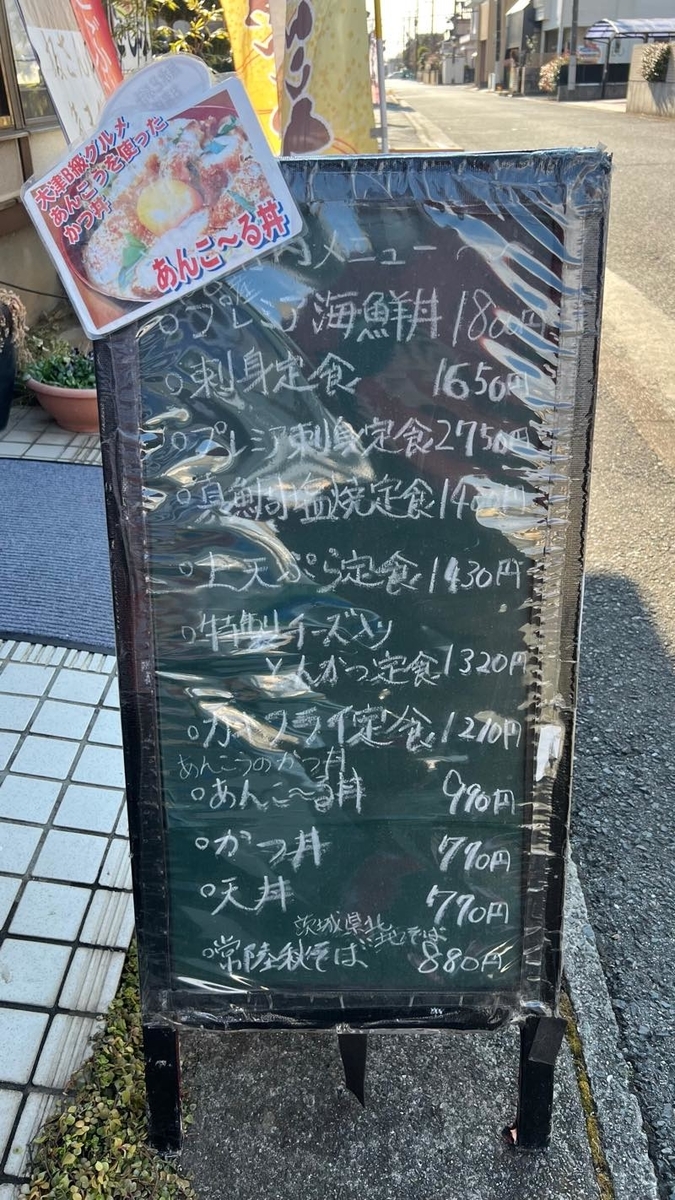 大津B級グルメ
あんこうを使った
かつ丼
あんこ〜る丼
内メニュー
○プレミア海鮮丼 1800円
○刺身定食 1650円
○プレミア刺身定食 2750円
○真鯛塩焼定食
○上天ぷら定食 1430円
○特製チーズ入り
とんかつ定食 1320円
○カキフライ定食 1210円
あんこうのかつ丼
○あんこ〜る丼 990円
○かつ丼 770円
○天丼 770円
茨城県北地そば
○常陸秋そば 880円